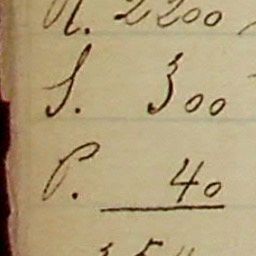 N. 2200
S. 300
P. 40